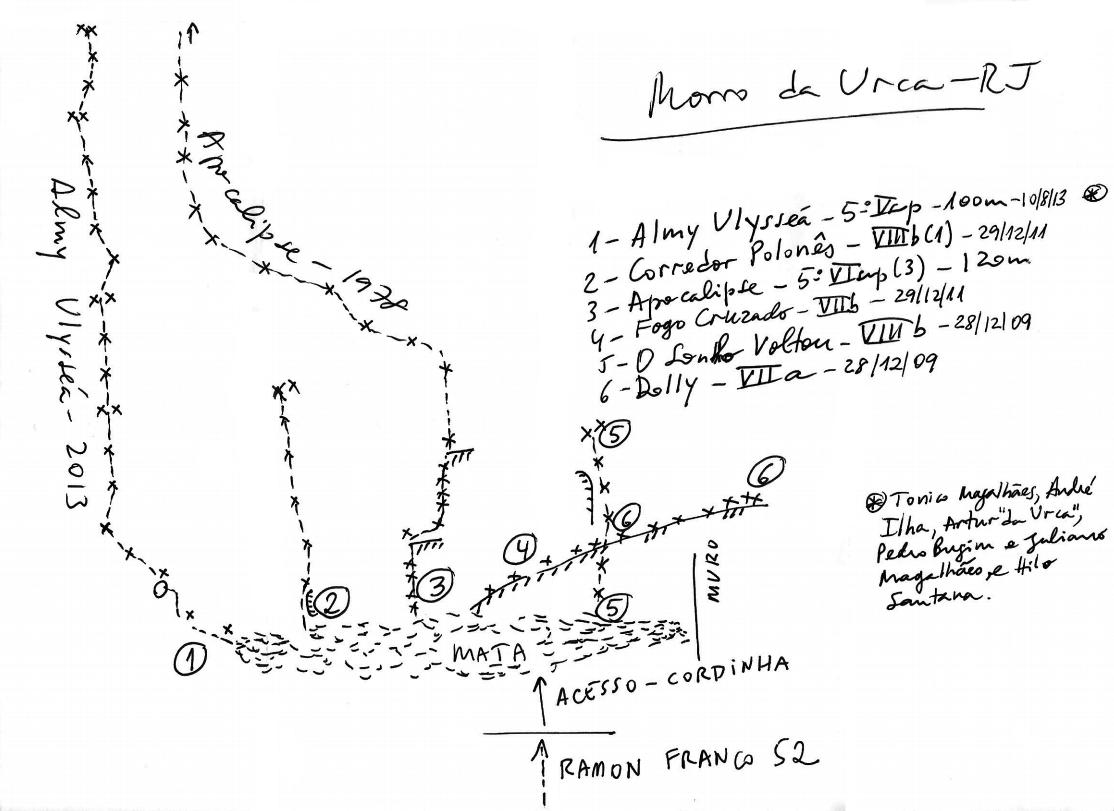 Morro da Urca - RJ
1 - Almy Ulysseá - 5º Vsup - 100m - 10/8/13 *
2 - Corredor Polonês - VIIIb (1) - 29/12/11
3 - Apocalipse - 5º VIsup (3) - 120m
4 - Fogo Cruzado - VIIb - 29/12/11
5 - O Sonho Voltou - VIIIb - 28/12/09
6 - Dolly - VIIa - 28/12/09
Apocalipse - 1978
Almy Ulysseá - 2013
5
6
6
4
3
2
5
1
MURO
MATA
ACESSO - CORDINHA
RAMON FRANCO 52
* Tonico Magalhães, André
Ilha, Artur "da Urca",
Pedro Bugim e Juliano
Magalhães, e Hilo
Santana.